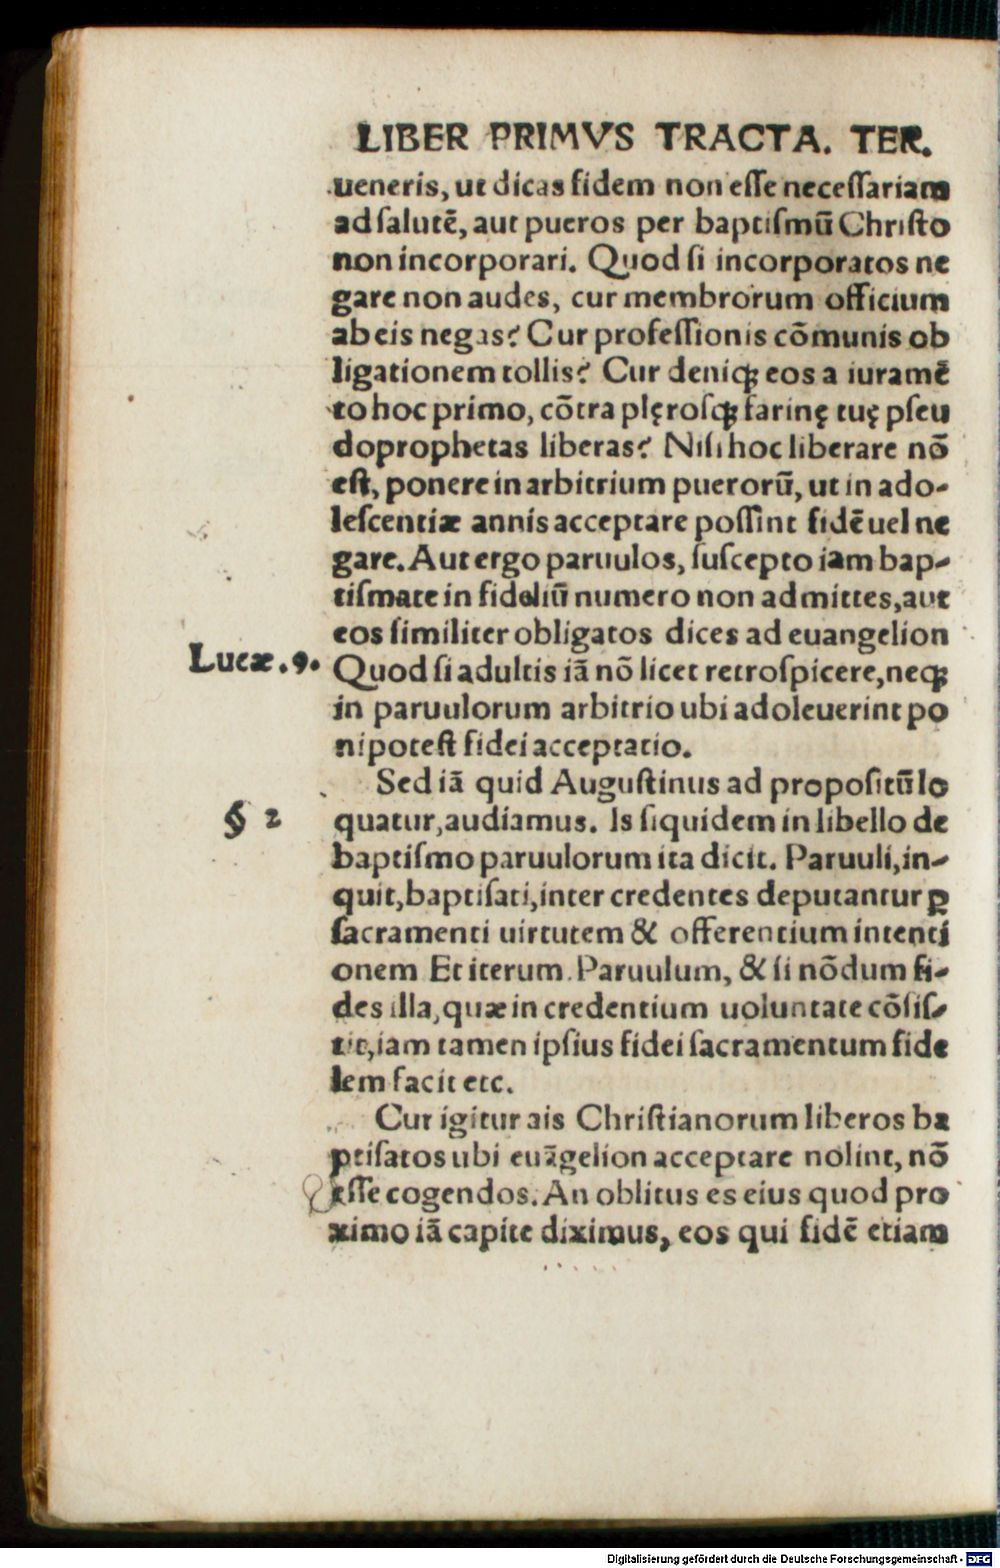 LIBER PRIMVS TRACTA. TER.
ueneris, ut dicas fidem non eſſe neceſſariam
ad ſalutē, aut pueros per baptiſmū Chriſto
non incorporari. Quod ſi incorporatos ne
gare non audes, cur membrorum officium
ab eis negas? Cur profeſſionis cōmunis ob
ligationem tollis? Cur deniqꝫ eos a iuramē
to hoc primo, cōtra plęroſqꝫ farinę tuę pſeu
doprophetas liberas? Niſi hoc liberare nō
eſt, ponere in arbitrium puerorū, ut in ado-
leſcentiæ annis acceptare poſſint fidē uel ne
gare. Aut ergo paruulos, ſuſcepto iam bap-
tiſmate in fideliū numero non admittes, aut
eos ſimiliter obligatos dices ad euangelion
Lucæ. 9.
Quod ſi adultis iā nō licet retroſpicere, neqꝫ
in paruulorum arbitrio ubi adoleuerint po
ni poteſt fidei acceptatio.
Sed iā quid Auguſtinus ad propoſitū lo
§ 2
quatur, audiamus. Is ſiquidem in libello de
baptiſmo paruulorum ita dicit. Paruuli, in-
quit, baptiſati, inter credentes deputantur ꝑ
ſacramenti uirtutem & offerentium intenti
onem Et iterum. Paruulum, & ſi nōdum fi-
des illa, quæ in credentium uoluntate cōſiſ-
tit, iam tamen ipſius fidei ſacramentum fide
lem facit etc.
Cur igitur ais Chriſtianorum liberos ba
ptiſatos ubi euāgelion acceptare nolint, nō
eſſe cogendos. An oblitus es eius quod pro
ximo iā capite diximus, eos qui fidē etiam
Digitalisierung gefördert durch die Deutsche Forschungsgemeinschaft - DFG